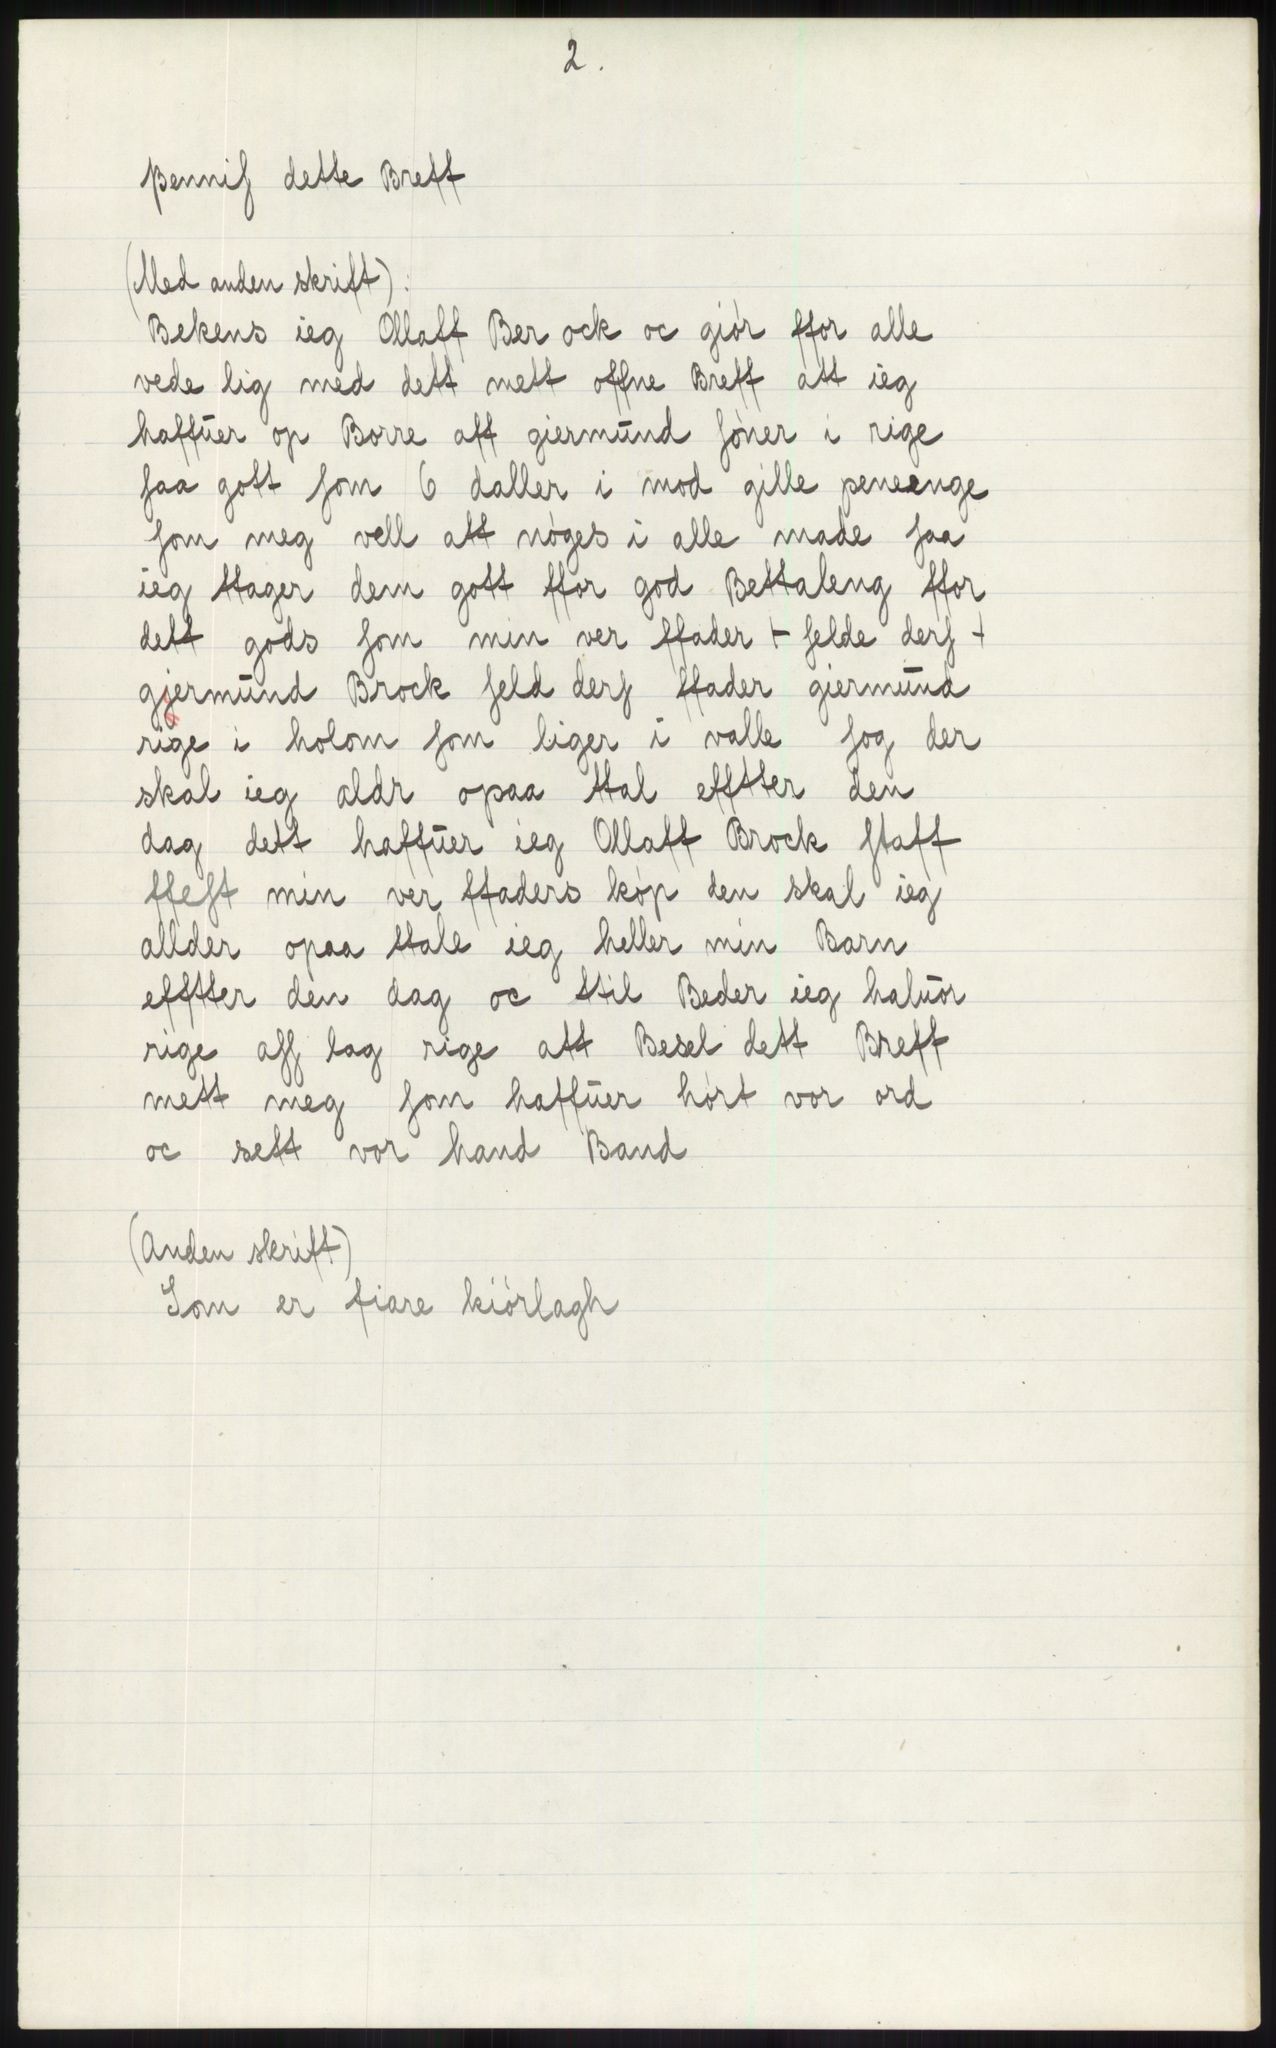 2.
pennis dette Breff
(Med anden skrift):
Bekens ieg Ollaff Ber ock oc giör ffor alle
vede lig med dett mett offne Breff att ieg
haffūer op Borre aff giermūnd söner i rige
saa gott som 6 daller i mod gille peneenge
som meg vell att nöges i alle made saa
ieg ttager dem gott ffor god Bettaleng ffor
dett gods som min ver ffader + selde ders +
gjermūnd Brock seld ders ffader giermūnd
rige i holom som liger i valle sog der
skal ieg aldr opaa ttal efftter den
dag dett haffūer ieg Ollaff Brock staff
ffest min ver ffaders köp den skal ieg
allder opaa ttale ieg heller min Barn
efftter den dag oc ttil Beder ieg halūor
rige aff lag rige att Besel dett Breff
mett meg som haffūer hört vor ord
oc sett vor hand Band
(Anden skrift)
Som er fiare kiörlagh